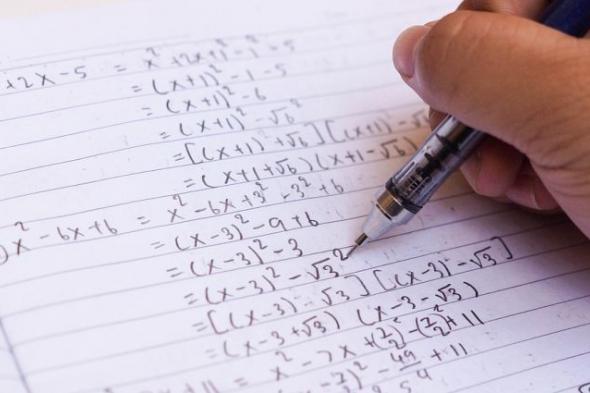 +2x-5 = x²+2x+1²-1²-5
= (x+1)²-1-5
= (x+1)²-6
= (x+1)²-√6²
=[(x+1)+√6][(x+1)-√
=(x+1+√6)(x+1-√6)
)x²-6x+6 = x²-6x+3²-3²+6
= (x-3)²-9+6
= (x-3)²-3
= (x-3)²-√3²
=[(x-3)-√3][(x-3)-√3]
=(x-3+√3)(x-3-√3)
x+11 = x²-7x+(7/2)²-(7/2)²+11
-7/2)²-49/4+11